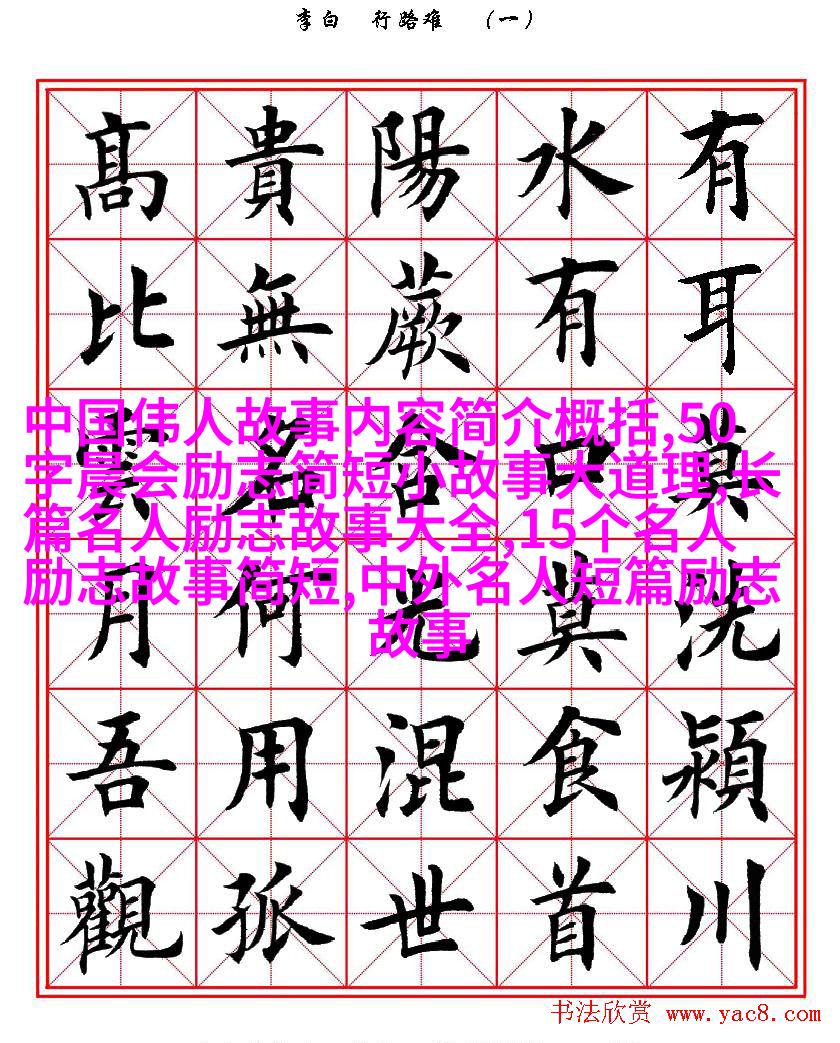 李白 行路难 （一）
有耳莫洗潁川
水有口莫食首
陽蕨含光混世
貴無名何用孤
髙比雲月吾觀
中国伟人故事内容简介概括,50
字晨会励志简短小故事大道理,长
篇名人励志故事大全,15个名人
励志故事简短,中外名人短篇励志
故事
书法欣赏 www.yac8.com